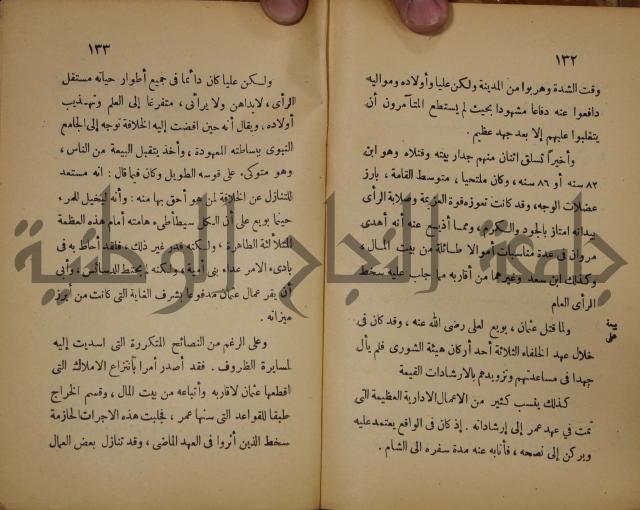 ١٣٢
وقت الشدة وهربوا من المدينة ولكن عليا وأولاده ومواليه
دافعوا عنه دفاعا مشهودا بحيث لم يستطع المتآمرون أن
يتغلبوا عليهم إلا بعد جهد عظيم .
وأخيرا تسلق اثنان منهم جدار بيته وقتلاه وهو ابن
٨٢ سنه أو ٨٦ سنه ، وكان ملتحيا ، متوسط القامة ، بارز
عضلات الوجه ، وقد كانت تعوزه قوة العزيمة وصلابة الرأى
بيد انه امتاز بالجود والكرم ، ومما أذيع عنه أنه أهدى
مروان فى عدة مناسبات أموالا طائلة من بيت المال ،
وكذلك ابن سعد وغيرهما من أقاربه مما جلب عليه سخط
الرأى العام
بيعة على
ولما قتل عثمان ، بويع لعلى رضى الله عنه ، وقد كان فى
خلال عهد الخلفاء الثلاثة أحد أركان هيئة الشورى فلم يأل
جهدا فى مساعدتهم وتزويدهم بالارشادات القيمة
كذلك ينسب كثير من الاعمال الادارية العظيمة التى
تمت في عهد عمر إلى إرشاداته . إذ كان فى الواقع يعتمد عليه
ويركن إلى نصحه ، فأنابه عنه مدة سفره الى الشام .
١٣٣
ولكن عليا كان دائما فى جميع أطوار حياته مستقل
الرأى ، لايداهن ولا يرائى ، متفرغا إلى العلم وتهذيب
أولاده . ويقال أنه حين افضت إليه الخلافة توجه إلى الجامع
النبوى ببساطته المعهودة ، وأخذ يتقبل البيعة من الناس ،
وهو متوكىء على قوسه الطويل وكان فيما قال : انه مستعد
للتنازل عن الخلافة لمن هو أحق بها منه : وأنه ليخيل للمرء
حينما بويع على أن الكل سيطأطىء هامته أمام هذه العظمة
المتلألئة الطاهرة ، ولكنه قدر غير ذلك ، فلقد أحاط به فى
بادىء الامر عداء بنى أمية ، ولكنه لم يحتط للدسائس ، وأبى
أن يقر عمال عثمان مدفوعا بشرف الغاية التى كانت من أبرز
ميزاته .
وعلى الرغم من النصائح المتكررة التى اسديت إليه
لمسايرة الظروف . فقد أصدر أمرا بأنتزاع الاملاك التى
اقطعها عثمان لاقاربه وأتباعه من بيت المال ، وقسم الخراج
طبقا للقواعد التى سنها عمر ، فجلبت هذه الاجرات الحازمة
سخط الذين أثروا فى العهد الماضى ، وقد تنازل بعض العمال
جامعة النجاح الوطنية